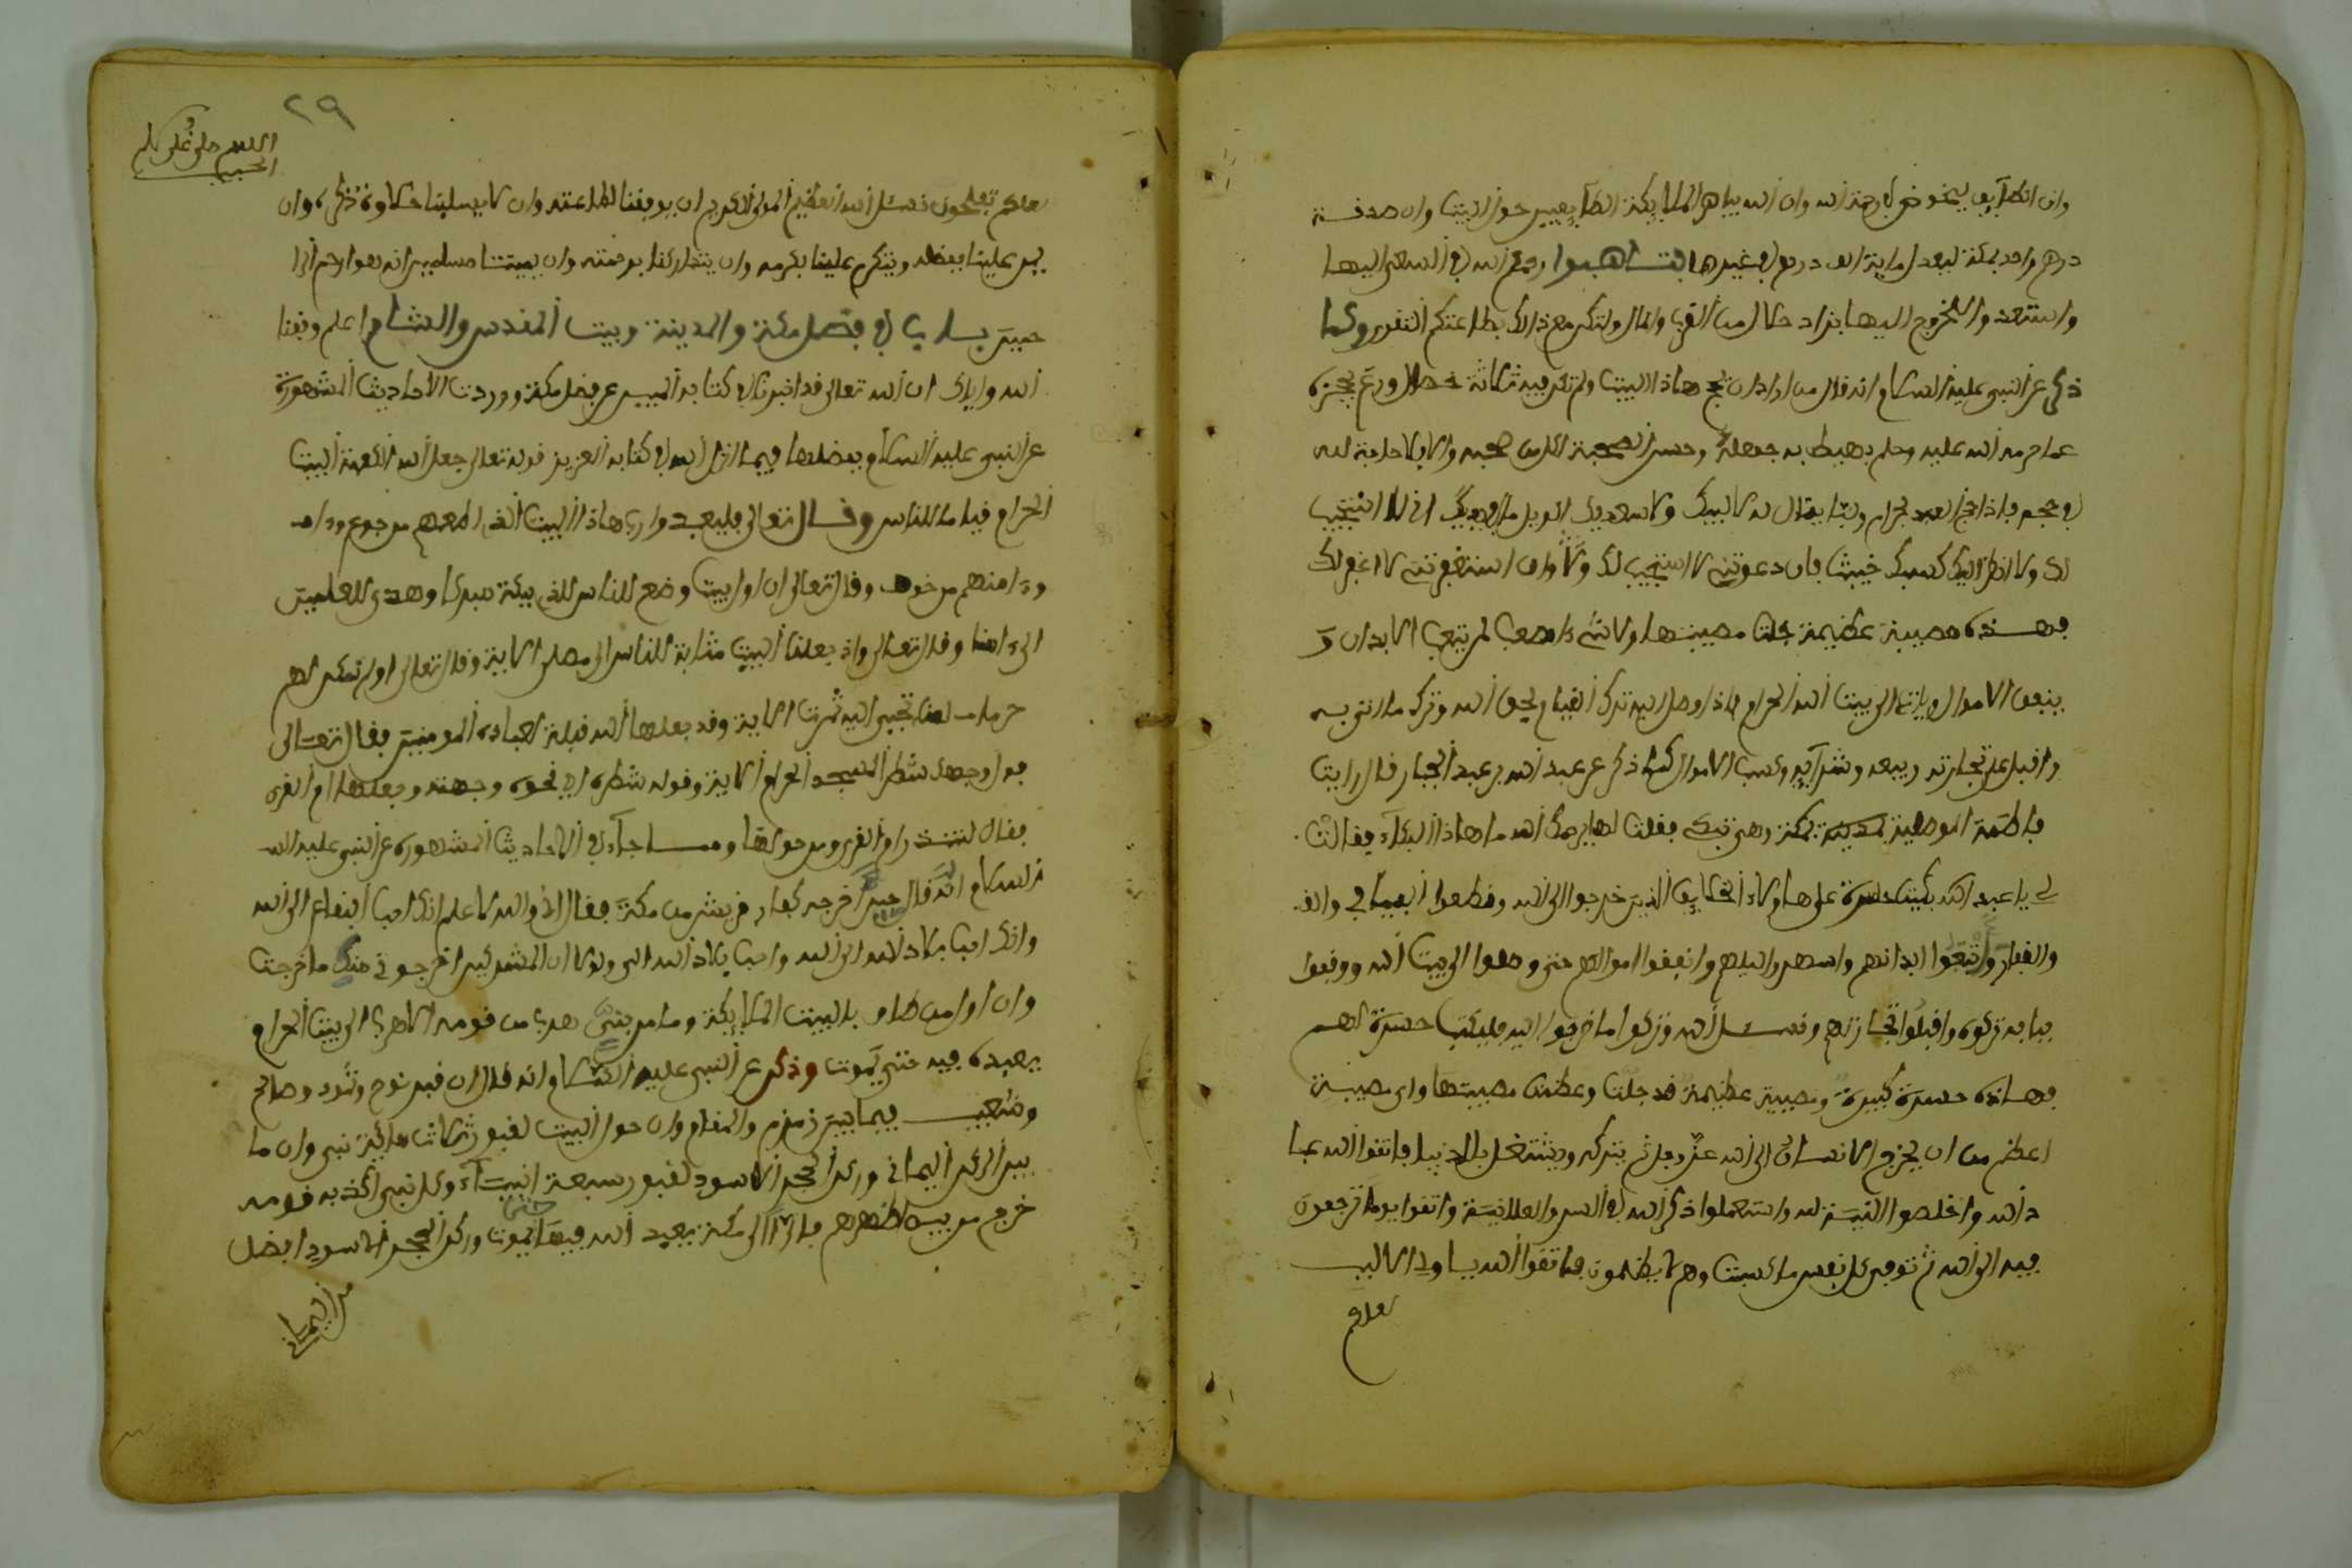 وان الطآيف ليخوض في رحمة الله وان الله يباهي الملايكة بالطآيفيين حول البيت وان صدقة
درهم واحد بمكة ليعدل ماية الف درهم في غيرها بتاهبوا رحمكم الله في السعي اليها
واستعدوا للخروج اليها بزاد حلال من القرب والمال ولتكن مع ذلك بطاعتكم التقوى وكما
ذكر عن النبي عليه السلام انه قال من اراد ان يحج هاذا البيت ولم تكن فيه ثلاثة خصال ورع يحجزه
عما حرم الله عليه وحلم يضبط به جهله وحسن الصحبة لمن صحبه والا فلا حاجة لله
في حجه فاذا حج العبد بحرام يقال له لا لبيك ولا سعديك الويل ما في يديك اني لا استجيب
لك ولا انظر اليك كسبك خبيث فان دعوتني لا استجيب لك وان استغفرتني لا اغفر لك
فهذه مصيبة عظيمة جلت مصيبتها ولا شيء اصعب لمن يتعب الابدان و
ينفق الاموال وياتي الى بيت الله الحرام فاذا وصل اليه ترك القيام بحق الله وترك ما اتى به
واقبل على تجارته وبيعه وشرآيه وكسب الاموال كما ذكر عن عبد الله بن عبد الجبار قال رايت
فاطمة الموصلية بمكة وهي تبكي فقلت لها يرحمك الله ما هاذا البكآء فقالت
لي يا عبد الله بكيت حسرة على هاولاء الخلايق الذين خرجوا الى الله وقطعوا الفيافي والقـ
والقفار واتعبوا ابدانهم واسهروا ليلهم وانفقوا اموالهم حتى وصلوا الى بيت الله ووقفوا
ببابه تركوه واقبلوا تجارتهم ونسـ الله وتركوا ما خرجوا اليه فبكيت حسرة لهم
فهاذه حسرة كبيرة ومصيبة عظيمة قد جلت وعظمت مصيبتها واي مصيبة
اعظم من ان يخرج الانسان الى الله عز وجل ثم يتركه ويشتغل بالدنيا فاتقوا الله عبا
د الله واخلصوا النية لله واستعملوا ذكر الله في السر والعلانية واتقوا يوما ترجعون
فيه الى الله ثم توفى كل نفس ما كسبت وهم لا يظلمون فاتقوا الله يا اولي الالبب
لعلكم
٢٩
اللهم صل على
الحبيب
لعلكم تفلحون نسئل الله العظيم المولى الكريم ان يوفقنا لطاعته وان لا يسلبنا حلاوة ذكره وان
يمن علينا بفضله ويتكرم علينا بكرمه وان يتداركنا برحمته وان يميتنا مسلمين انه هو ارحم الرا
حمين باب في فضل مكة والمدينة وبيت المقدس والشام اعلم وفقنا
الله واياك ان الله تعالى قد اخبرنا في كتابه المبين عن فضل مكة ووردت الاحاديث المشهورة
عن النبي عليه السلام بفضلها فيما انزل الله في كتابه العزيز قوله تعالى جعل الله الكعبة البيت
الحرام قيما للناس وقال تعالى فليعبدوا رب هاذا البيت الذي اطعمهم من جوع وءامـ
وءامنهم من خوف وقال تعالى ان اول بيت وضع للناس للذي ببكة مبركا وهدى للعلمين
الى ءامنا وقال تعالى واذ جعلنا البيت مثابة للناس الى مصلى الاية وقال تعالى اولم نمكن لهم
حرما ءامنا تجبى اليه ثمرت الاية وقد جعلها الله قبلة لعباده المومنين فقال تعالى
فول وجهك شطر المسجد الحرام الاية وقوله شطره اي نحوه وجهته وجعلها ام القرى
فقال لتنذر ام القرى ومن حولها ومما جآء في الاحاديث المشهورة عن النبي عليه السـ
السلام انه قال حين اخرجه كفار قريش من مكة فقال اني والله لاعلم انك احب البقاع الى الله
وانك احب بلاد الله الى الله واحب بلاد الله الي ولولا ان المشركين اخرجوني منك ما خرجت
وان اول من طاف بالبيت الملايكة وما من نبي هرب من قومه الا هرب الى بيت الحرام
يعبده فيه حتى يموت وذكر عن النبي عليه السلام انه قال ان قبر نوح وهود وصالح
وشعيب فيما بين زمزم والمقام وان حول البيت لقبور ثلاث ماية نبي وان ما
بين الركن اليماني وركن الحجر الاسود لقبور سبعة انبيآء وكل نبي اكذبه قومه
خرج من بين اظهرهم فاتى الى مكة يعبد الله فيها حتى يموت وركن الحجر الاسود افضل
من اليماني